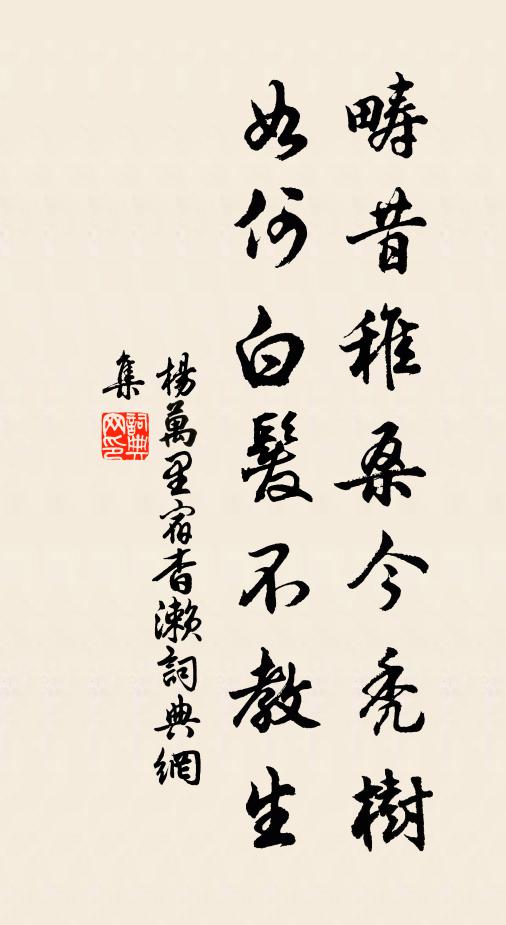 疇昔稚桑今禿樹
如何白髮不教生
楊萬里宿杳瀨詞典網
集
詞典網印